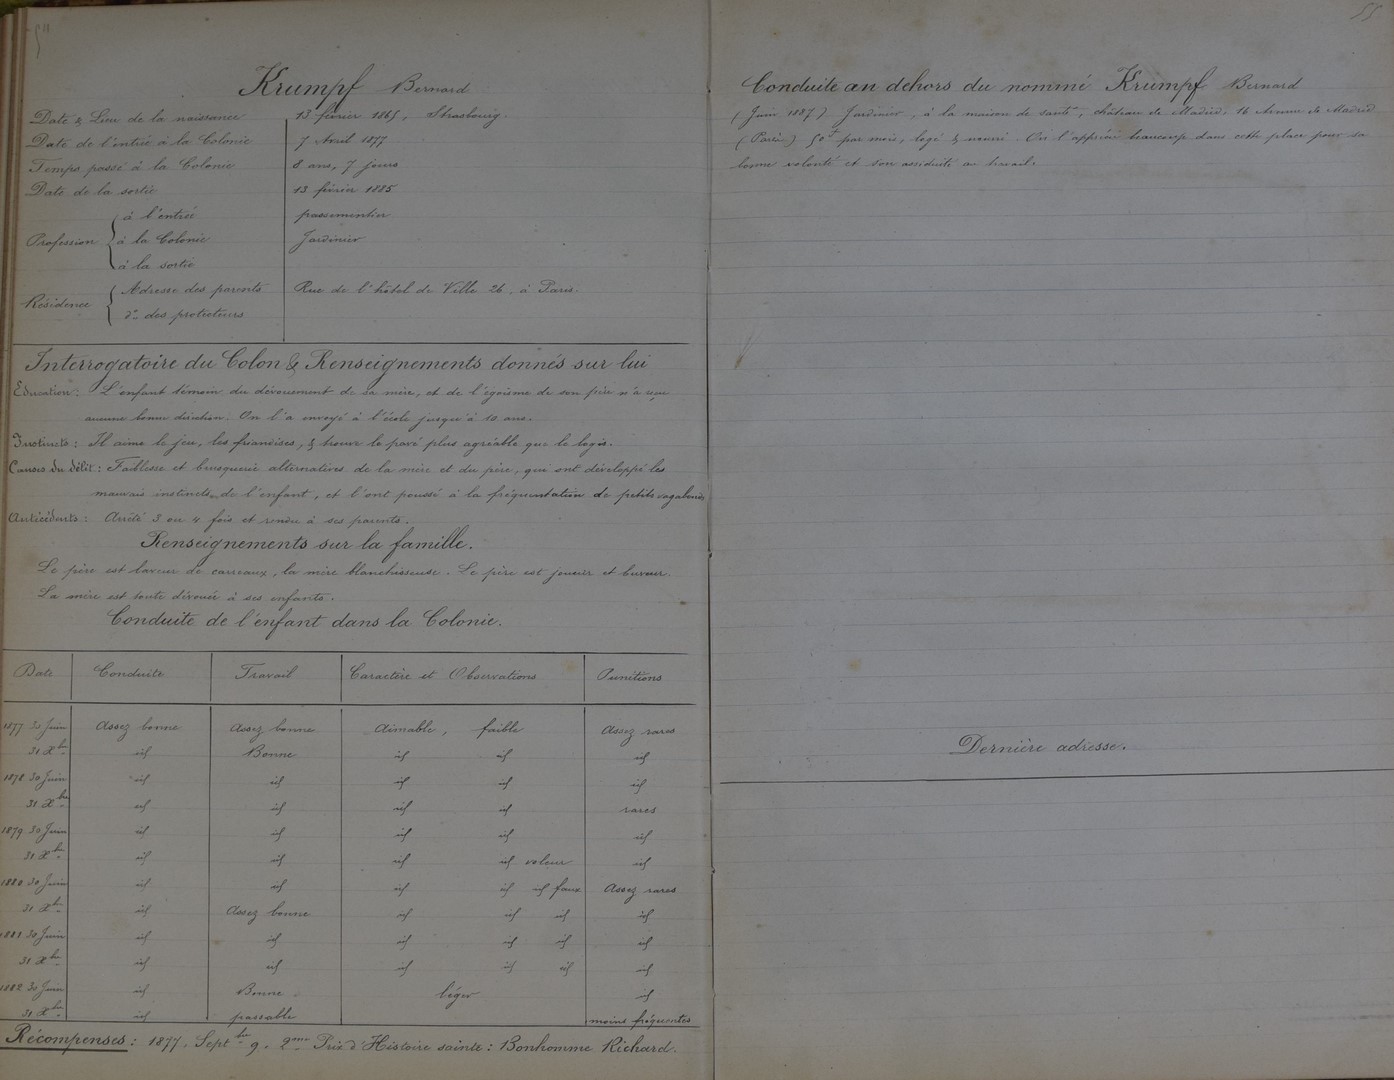 Krumpf Bernard
Date & Lieu de la naissance 13 février 1865, Strasbourg.
Date de l'entrée à la Colonie 7 Avril 1877
Temps passé à la Colonie 8 ans, 7 jours
Date de la sortie 13 février 1885
Profession à l'entrée passementier
à la Colonie Jardinier
à la sortie
Résidence Adresse des parents Rue de l'hôtel de Ville 26. à Paris.
do des protecteurs
Interrogatoire du Colon & Renseignements donnés sur lui
Education : L'enfant témoin du dévouement de sa mère, et de l'égoïsme de son père n'a reçu
aucune bonne direction. On l'a envoyé à l'école jusqu'à 10 ans.
Instincts : Il aime le jeu, les friandises, & trouve le pavé plus agréable que le logis.
Causes du délit : Faiblesse et brusquerie alternatives de la mère et du père, qui ont développé les
mauvais instincts de l'enfant, et l'ont poussé à la fréquentation de petits vagabonds
Antécédents : Arrêté 3 ou 4 fois et rendu à ses parents.
Renseignements sur la famille.
Le père est laveur de carreaux, la mère blanchisseuse. Le père est joueur et buveur.
La mère est toute dévouée à ses enfants.
Conduite de l'enfant dans la Colonie.
Date Conduite Travail Caractère et Observations Punitions
1877 30 Juin Assez bonne Assez bonne Aimable, faible Assez rares
31 Xbre id Bonne id id id
1878 30 Juin id id id id id
31 Xbre id id id id rares
1879 30 Juin id id id id id
31 Xbre id id id id voleur id
1880 30 Juin id id id id id faux Assez rares
31 Xbre id Assez bonne id id id id
1881 30 Juin id id id id id id
31 Xbre id id id id id id
1882 30 Juin id Bonne léger id
31 Xbre id passable moins fréquentes
Récompenses : 1877. Septbre 9. 2ème Prix d'Histoire sainte : Bonhomme Richard.
55
Conduite au dehors du nommé Krumpf Bernard
(Juin 1887) Jardinier, à la maison de santé, château de Madrid, 16 Avenue de Madrid
(Paris) 50f par mois, logé & nourri. On l'apprécie beaucoup dans cette place pour sa
bonne volonté et son assiduité au travail.
Dernière adresse.